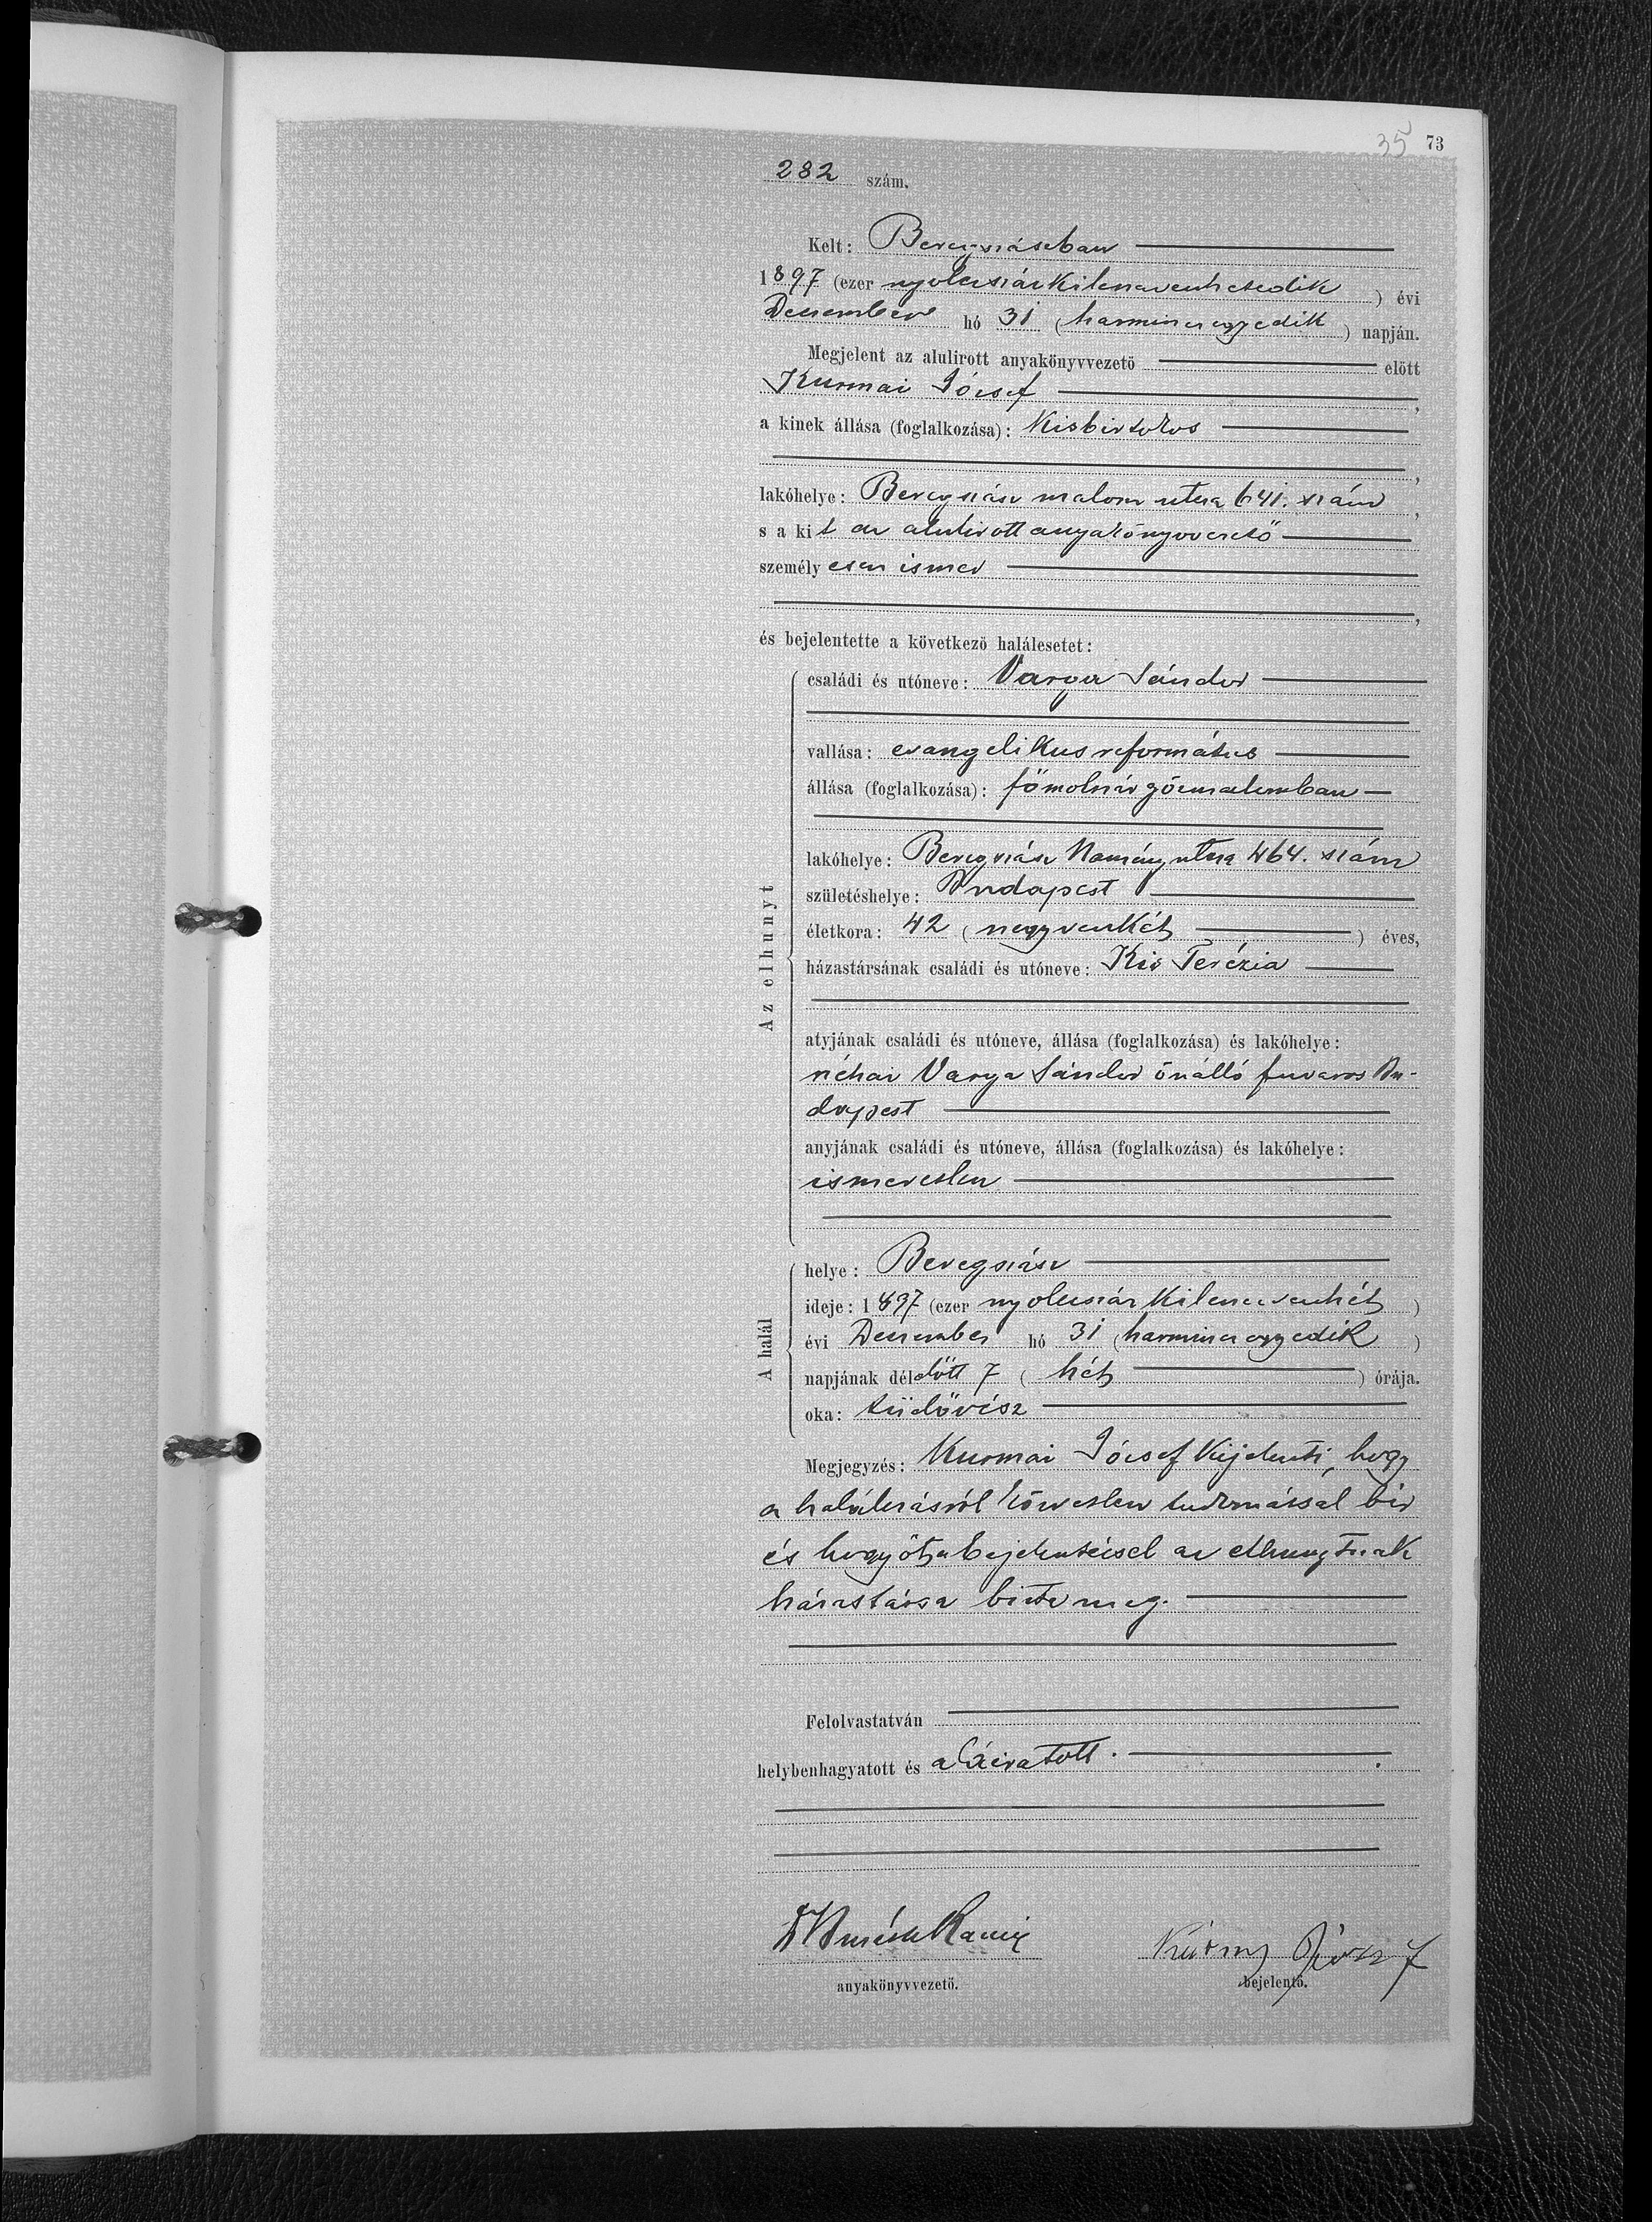 35 73
282 szám.
Kelt: Beregszászban
1897 (ezer nyolczszázkilenczvenhetedik) évi
Deczember hó 31 (harminczegyedik) napján.
Megjelent az alulirott anyakönyvvezető előtt
Kurmai József,
a kinek állása (foglalkozása): Kisbirtokos
,
lakóhelye: Beregszász malom utcza 641. szám,
s a kit az alulirott anyakönyvvezető
személyesen ismer
,
és bejelentette a következő halálesetet:
Az elhunyt
családi és utóneve: Varga Sándor
vallása: evangelikus református
állása (foglalkozása): főmolnár gőzmalomban
lakóhelye: Beregszász Namény utcza 464. szám
születéshelye: Budapest
életkora: 42 (negyvenkét) éves,
házastársának családi és utóneve: Kis Terézia
atyjának családi és utóneve, állása (foglalkozása) és lakóhelye:
néhai Varga Sándor önálló fuvaros Bu-
dapest
anyjának családi és utóneve, állása (foglalkozása) és lakóhelye:
ismeretlen
A halál
helye: Beregszász
ideje: 1897 (ezer nyolczszáz kilenczvenhét)
évi Deczember hó 31 (harminczegyedik)
napjának délelőtt 7 (hét) órája.
oka: tüdővész
Megjegyzés: Kurmai József kijelenti, hogy
a halálozásról közvetlen tudomással bir
és hogy őt a bejelentéssel az elhunytnak
házastársa bizta meg.
Felolvastatván
helybenhagyatott és aláiratott.
anyakönyvvezető. bejelentő.